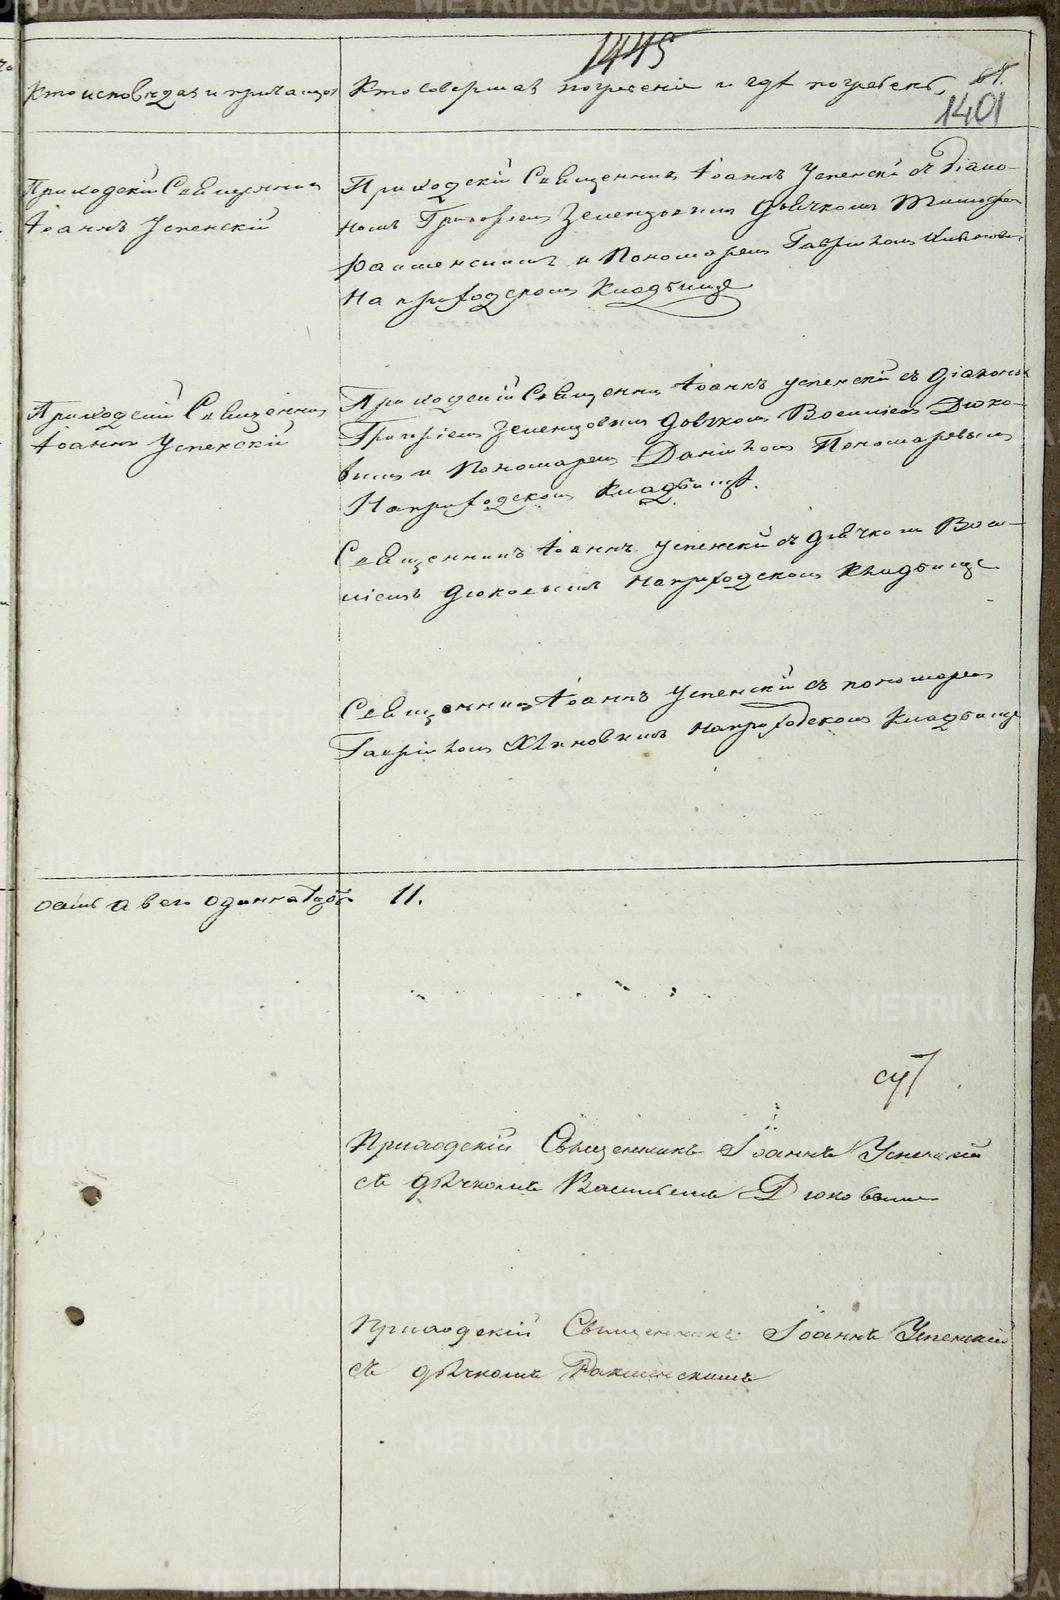 1445
Кто исповѣдал и причащал
Кто совершал погребеніе и гдѣ погребенъ
1401
Приходскій Священникъ
Іоаннъ Успенскій
Приходскій Священникъ Іоаннъ Успенскій съ Діако-
номъ Григоріемъ Зеленцовымъ дьячкомъ
Ракшенскимъ и Пономаремъ Гавріиломъ
На приходскомъ Кладбище
Приходскій Священникъ
Іоаннъ Успенскій
Приходскій Священникъ Іоаннъ Успенскій съ діакономъ
Григоріемъ Зеленцовымъ дьячкомъ Василіемъ Дюко-
вымъ и Пономаремъ Даніиломъ Пономаревымъ
На приходскомъ Кладбищѣ.
Священникъ Іоаннъ Успенскій съ дьячкомъ Васи-
ліемъ Дюковымъ на приходскомъ Кладбище
Священникъ Іоаннъ Успенскій съ пономаремъ
Гавріиломъ Хлыновымъ на приходскомъ Кладбище
а всего одиннадцать 11.
Приходскій Священникъ Іоаннъ Успенскій
съ дьячкомъ Васильемъ Дюковымъ
Приходскій Священникъ Іоаннъ Успенскій
съ дьячкомъ Ракшенскимъ
METRIKI.GASO-URAL.RU